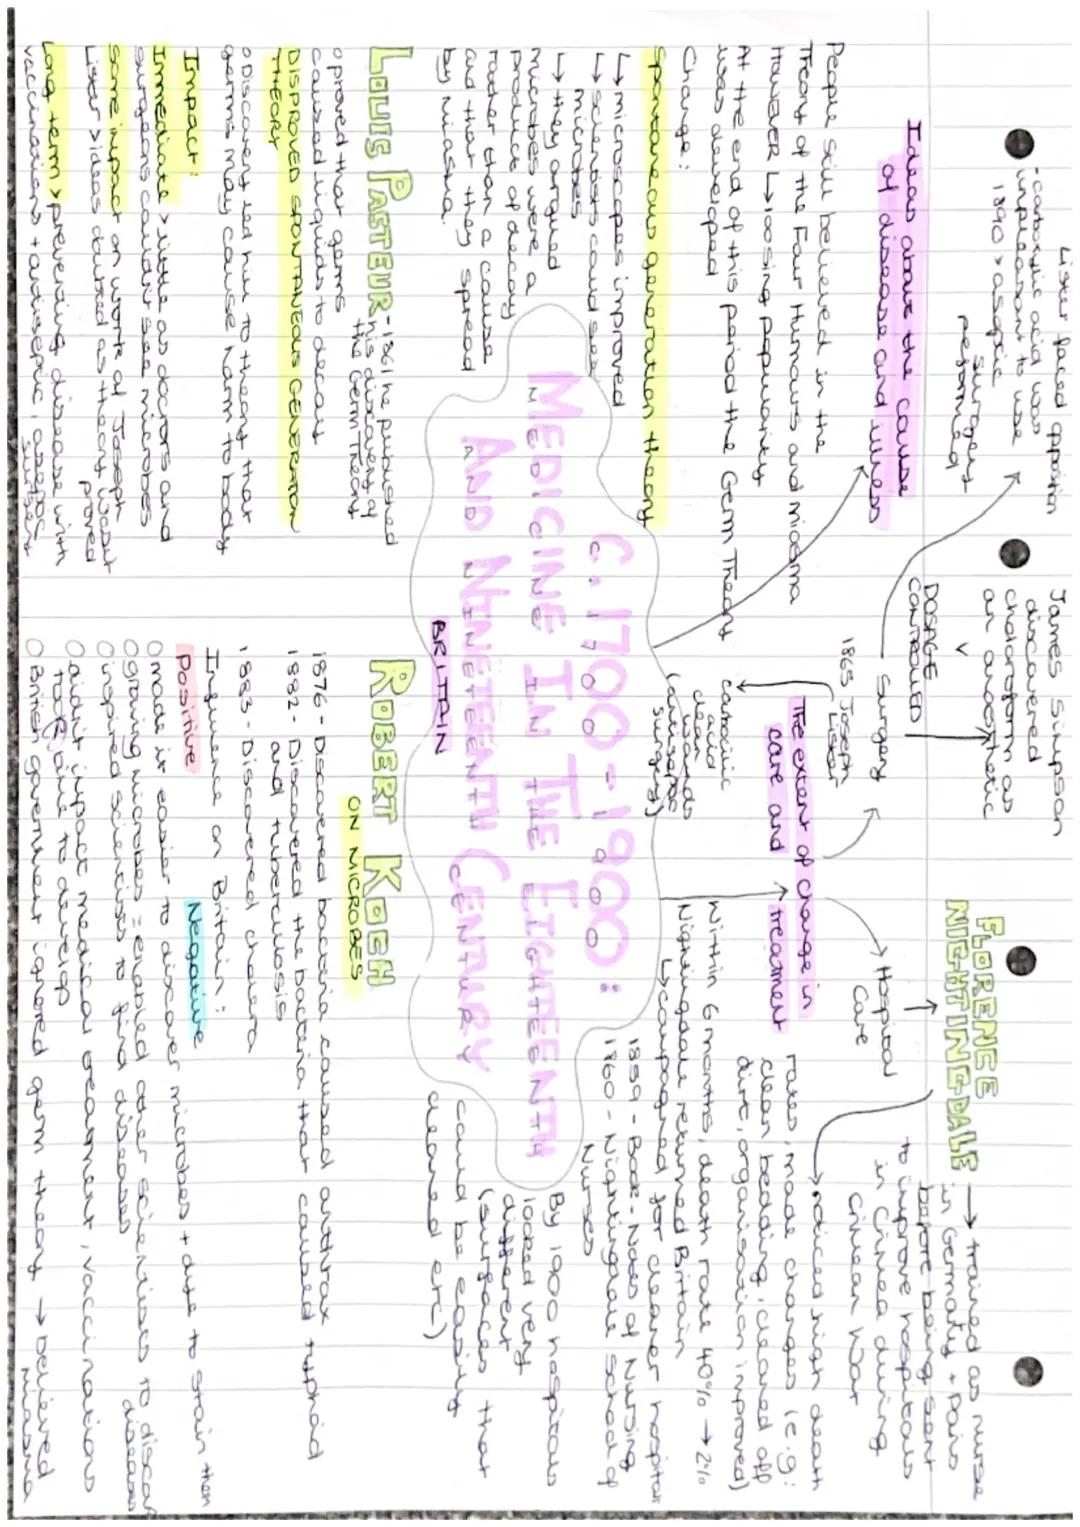 Lister faced opposition
- carboxylic acid was
unpleasant to use
1890 > aseptic
surgery
performed
Ideas about the cause
of disease and illness
People still believed in the
Theory of the Four Humours and miasma
HOWEVER ↳ loosing popularity
At the end of this period the Germ Theory
was developed
Change:
Spontaneous generation theory
↳ microscopes improved
↳ scientists could see
microbes
↳ they argued
microbes were a
product of decay
rather than a cause
and that they spread
by miasma.
James Simpson
discovered
choloroform as
an anaesthetic
DOSAGE
CONTROLLED
Surgery
1865 Joseph
Lister
carbolic
acid
clean
wounds
(antiseptic
surgery)
THE extent of change in
care and treatment
Hospital
care
FLORENCE
NIGHTINGALE
→ trained as nurse
in Germany + Paris
before being sent
to improve hospitals
in Crimea during
Crimean War
→ noticed high death
rates, made changes (e.g:
clean bedding, cleaned off
dirt, organisation improved)
Within 6 months, death rate 40% → 2%
Nightingale returned Britain
↳ campaigned for cleaner hospital
1859 - Book - Notes of Nursing
1860 - Nightingale School of
Nurses
By 1900 hospitals
looked very
different
(surfaces that
could be easily
cleaned etc)
C.1700-1900:
MEDICINE IN THE EIGHTEENTH
AND NINETEENTH CENTURY
BRITAIN
LOUIS PASTEUR
- 1861 he published
his discovery of
the Germ Theory
○ proved that germs
caused liquids to decay
DISPROVED SPONTANEOUS GENERATION
THEORY
○ Discovery led him to theory that
germs may cause harm to body
Impact:
Immediate > little as doctors and
surgeons couldn't see microbes
Some impact on work of Joseph
Lister > ideas doubted as theory wasn't
proved
Long term > preventing disease with
vaccinations + antiseptic, aseptic
surgery
ROBERT KOCH
ON MICROBES
1876 - Discovered bacteria caused anthrax
1882 - Discovered the bacteria that caused typhoid
and tuberculosis
1883 - Discovered cholera
Influence on Britain:
Positive
Negative
○ made it easier to discover microbes + dye to stain them
○ growing microbes = enabled other scientists to discover
diseases
○ inspired scientists to find diseases
○ didn't impact medical treatment, vaccinations
took time to develop
○ British government ignored germ theory → believed
miasma